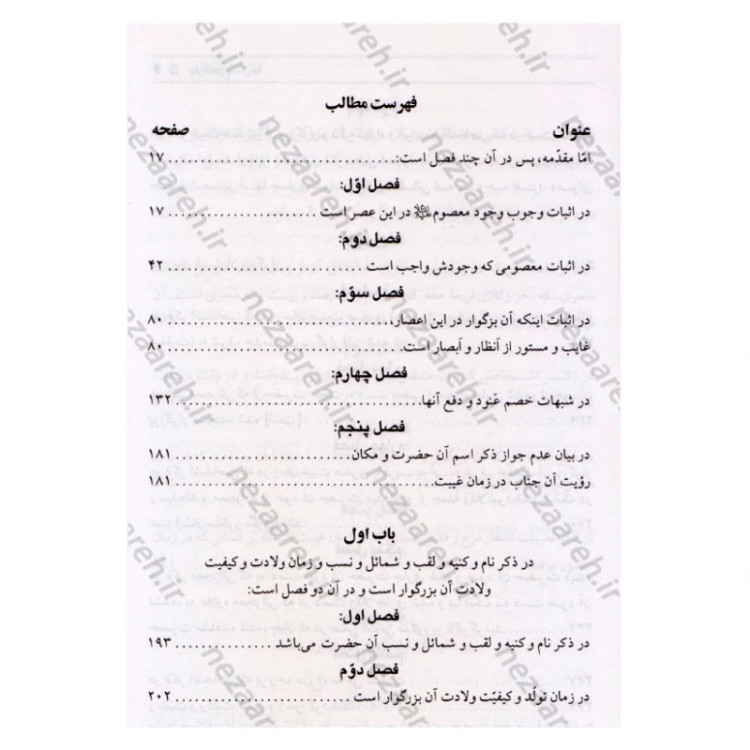 فهرست مطالب
عنوان صفحه
امّا مقدّمه، پس در آن چند فصل است: ۱۷
فصل اوّل:
در اثبات وجوب وجود معصوم در این عصر است ۱۷
فصل دوم:
در اثبات معصومی که وجودش واجب است ۴۲
فصل سوّم:
در اثبات اینکه آن بزگوار در این اعصار، ۸۰
غایب و مستور از أنظار و أبصار است. ۸۰
فصل چهارم:
در شبهات خصم عَنود و دفع آنها ۱۳۲
فصل پنجم:
در بیان عدم جواز ذکر اسم آن حضرت و مکان ۱۸۱
رؤیت آن جناب در زمان غیبت ۱۸۱
باب اول
در ذکر نام و کنیه و لقب و شمائل و نسب و زمان ولادت و کیفیت
ولادت آن بزرگوار است و در آن دو فصل است:
فصل اول:
در ذکر نام و کنیه و لقب و شمائل و نسب آن حضرت می‌باشد ۱۹۳
فصل دوّم
در زمان تولّد و کیفیّت ولادت آن بزرگوار است ۲۰۲
nezaareh.ir